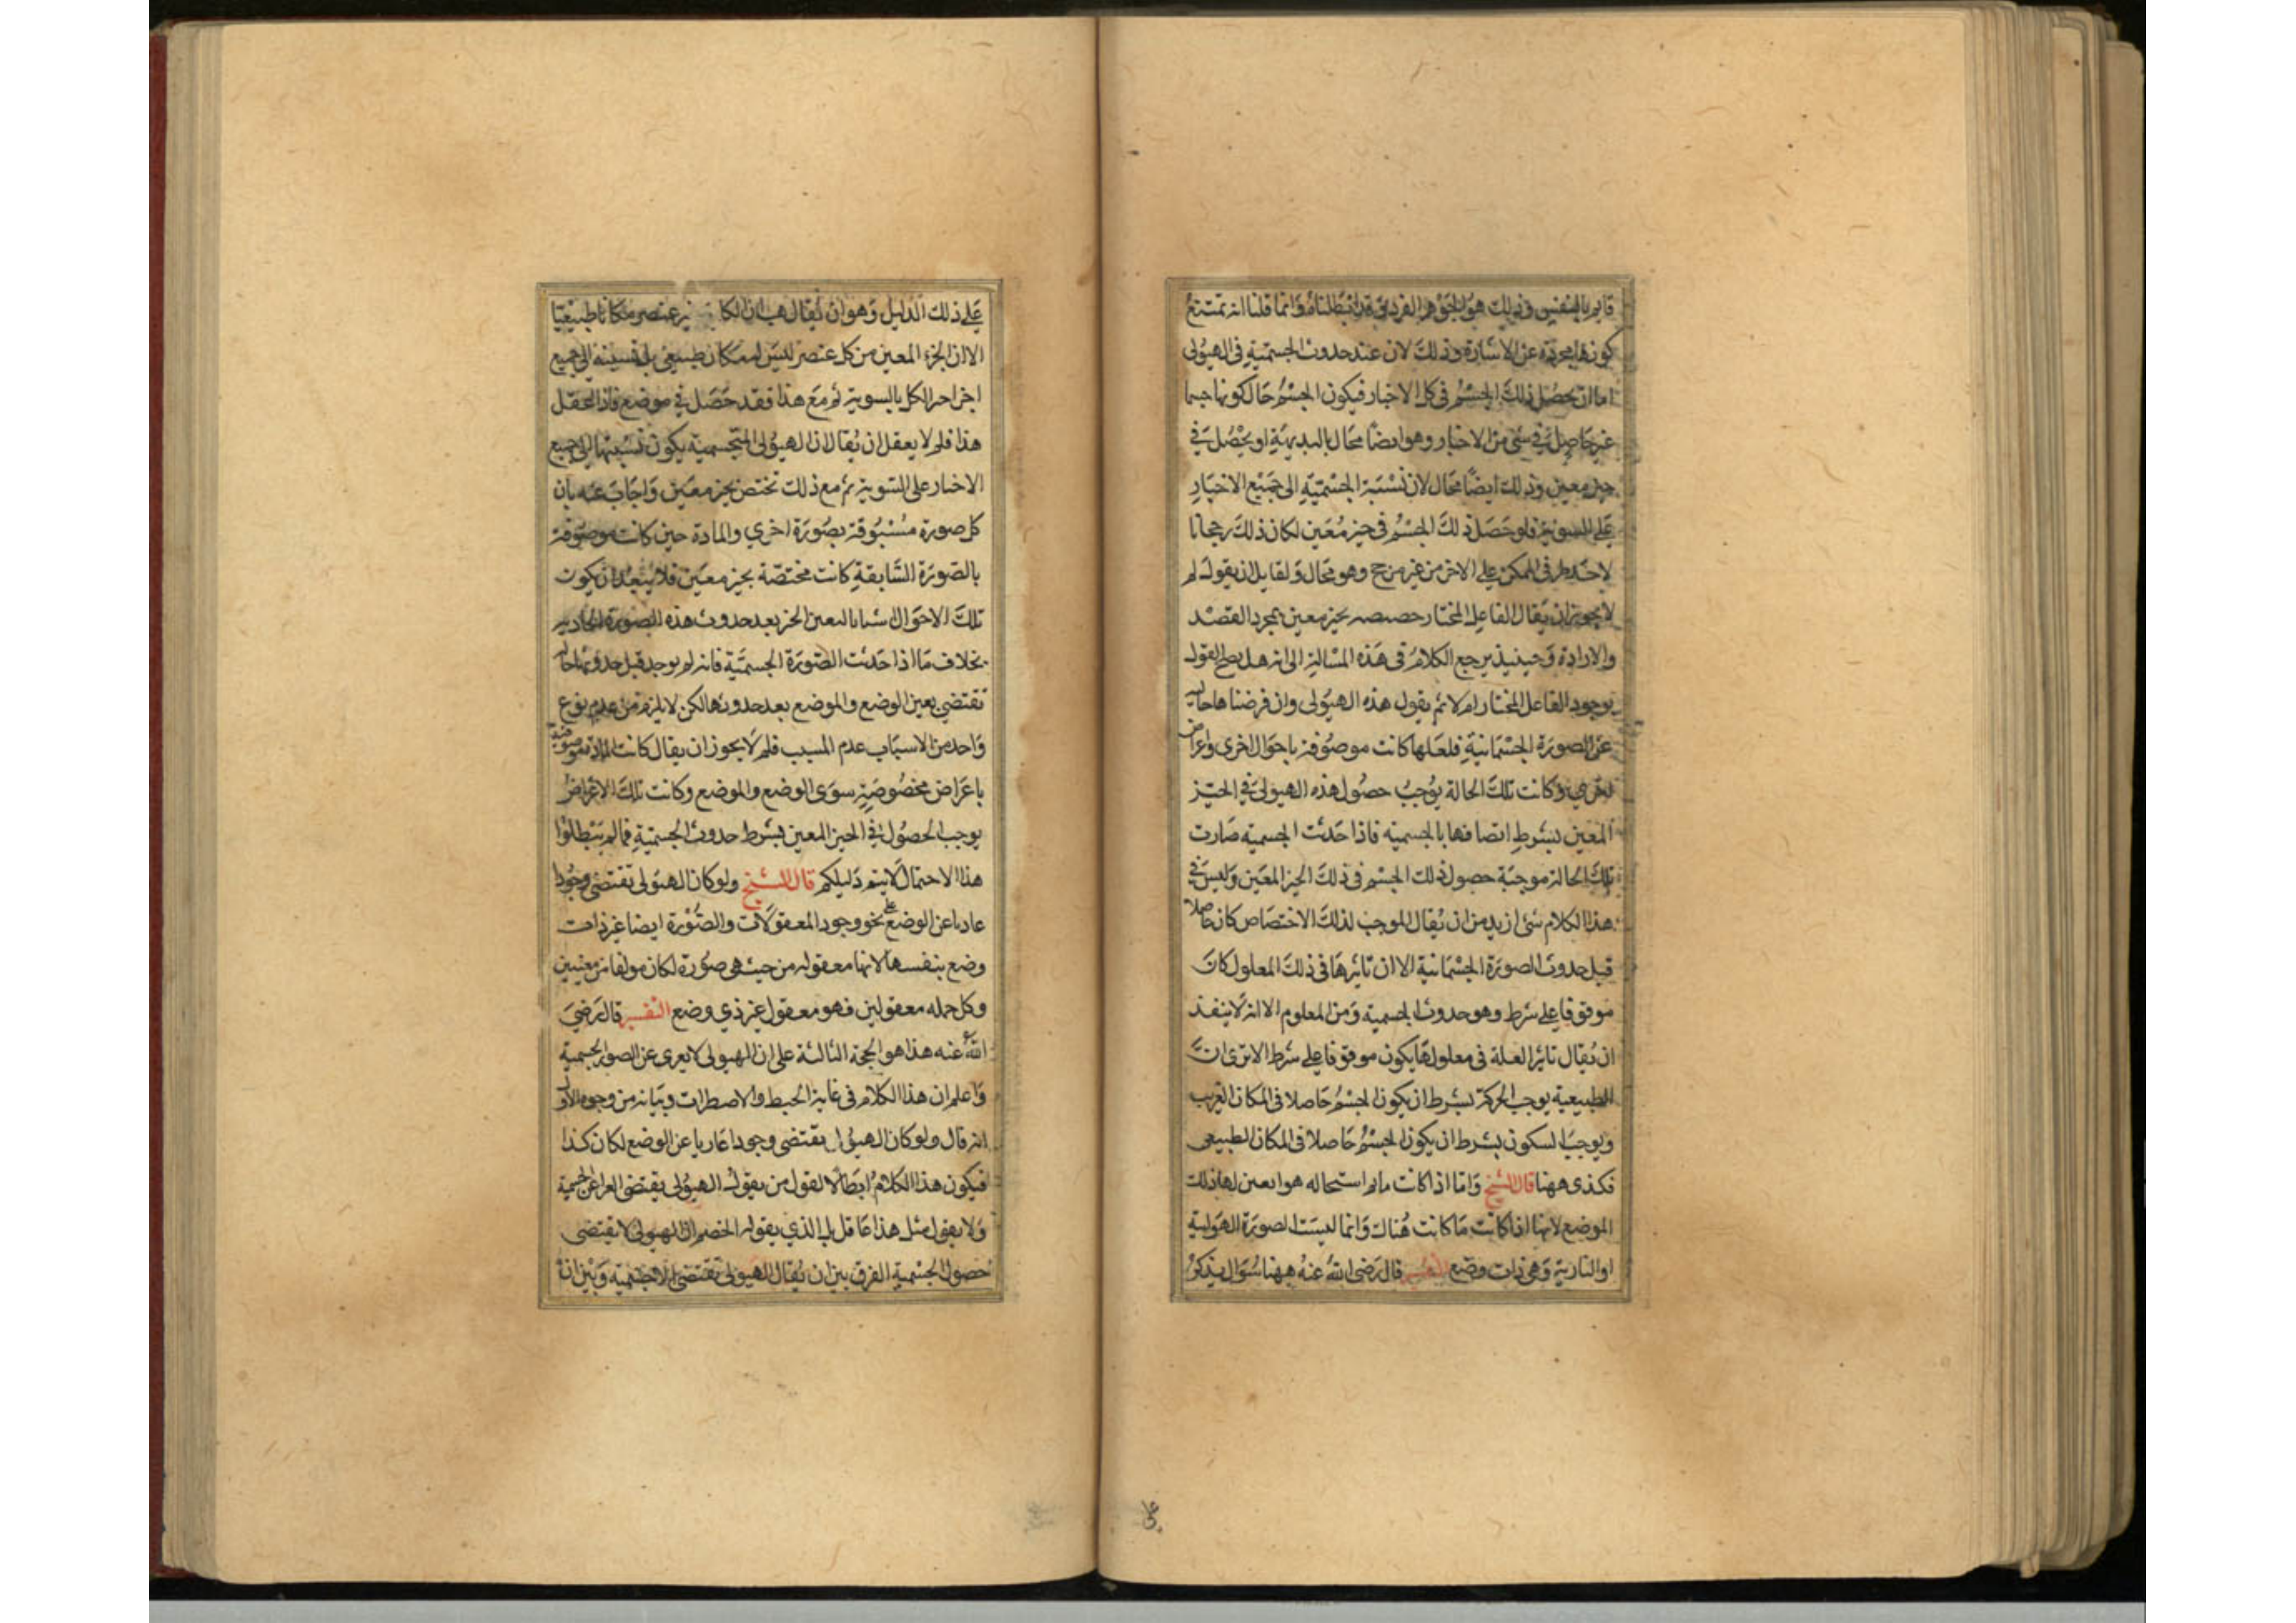 قايم بالنفس وذلك هو الجوهر الفرد وقد ابطلناه وانما قلنا انه تمتنع
كونها مجردة عن الاشارة وذلك لان عند حدوث الجسمية في الهيولى
اما ان يحصل ذلك الجسم في كل الاحياز فيكون الجسم حال كونها جسما
غير حاصل في شئ من الاحياز وهو ايضا محال بالبديهة او يحصل في
حيز معين وذلك ايضا محال لان نسبة الجسمية الى جميع الاحياز
على السوية فلو حصل ذلك الجسم في حيز معين لكان ذلك رجحانا
لاحد طرفي الممكن على الاخر من غير مرجح وهو محال ولقايل ان يقول لم
لا يجوز ان يقال الفاعل المختار خصصه بحيز معين بمجرد القصد
والارادة وحينيذ يرجع الكلام في هذه المسالة الى انه هل يصح القول
بوجود الفاعل المختار ام لا ثم يقول هذه الهيولى وان فرضناها خالية
عن الصورة الجسمانية فلعلها كانت موصوفة باحوال اخرى واعراض
اخرى وكانت تلك الحالة يوجب حصول هذه الهيولى في الحيز
المعين بشرط اتصافها بالجسمية فاذا حدثت الجسمية صارت
تلك الحالة موجبة حصول ذلك الجسم في ذلك الحيز المعين وليس في
هذا الكلام شئ ازيد من ان يقال الموجب لذلك الاختصاص كان حاصلا
قبل حدوث الصورة الجسمانية الا ان تاثيرها في ذلك المعلول كان
موقوفا على شرط وهو حدوث الجسمية ومن المعلوم الا انه لا
ان يقال تاثير العلة في معلولها يكون موقوفا على شرط الا ترى ان
الطبيعية يوجب الحركة بشرط ان يكون الجسم حاصلا في المكان الغريب
ويوجب السكون بشرط ان يكون الجسم حاصلا في المكان الطبيعي
فكذى ههنا قال الشيخ واما اذا كانت استحاله هواء تعين لها ذلك
الموضع لانها اذا كانت ما كانت هناك وانما لبست الصورة الهوايية
او النارية وهي ذات وضع التفسير قال رضى الله عنه ههنا سؤال يذكر
على ذلك الدليل وهو ان يقال هب ان لكل عنصر مكانا طبيعيا
الا ان الجزء المعين من كل عنصر ليس له مكان طبيعي بل نسبته الى جميع
اجزاء حيز الكل بالسوية ثم مع هذا فقد حصل في موضع فاذا عقل
هذا فلم لا يعقل ان يقال ان الهيولى المتجسمية يكون نسبتها الى جميع
الاحياز على السوية ثم مع ذلك تختص بحيز معين واجاب عنه بان
كل صورة مسبوقة بصورة اخري والمادة حين كانت موصوفة
بالصورة السابقة كانت مختصة بحيز معين فلا يبعد ان يكون
تلك الاحوال اسبابا لتعين الحيز بعد حدوث هذه الصورة الحادثة
بخلاف ما اذا حدثت الصورة الجسمية فانه لم يوجد قبل حدوثها حالة
تقتضي تعين الوضع والموضع بعد حدوثها لكن لا يلزم من عدم نوع
واحد من الاسباب عدم المسبب فلم لا يجوز ان يقال كانت المادة موصوفة
باعراض مخصوصة سوى الوضع والموضع وكانت تلك الاعراض
يوجب الحصول في الحيز المعين بشرط حدوث الجسمية فما لم يبطلوا
هذا الاحتمال لا يتم دليلكم قال الشيخ ولو كان الهيولى تقتضى وجودا
عاديا عن الوضع على نحو وجود المعقولات والصورة ايضا غير ذات
وضع بنفسها لانها معقوله من حيث هى صورة لكان مولفا من معنيين
وكل جمله معقولين فهو معقول غير ذي وضع التفسير قال رضي
الله عنه هذا هو الحجة الثالثة على ان الهيولى لا يعرى عن الصور الجسمية
واعلم ان هذا الكلام في غاية الخبط والاضطراب وبيانه من وجوه الاول
انه قال ولو كان الهيولى يقتضى وجودا عاريا عن الوضع لكان كذا
فيكون هذا الكلام ابطالا لقول من يقول الهيولى يقتضى العرا عن الجسمية
ولا يقول مثل هذا عاقل بل الذي يقوله الخصم ان الهيولى لا تقتضى
حصول الجسمية الفرق بين ان يقال الهيولى تقتضى الاجسمية وبين ان
على